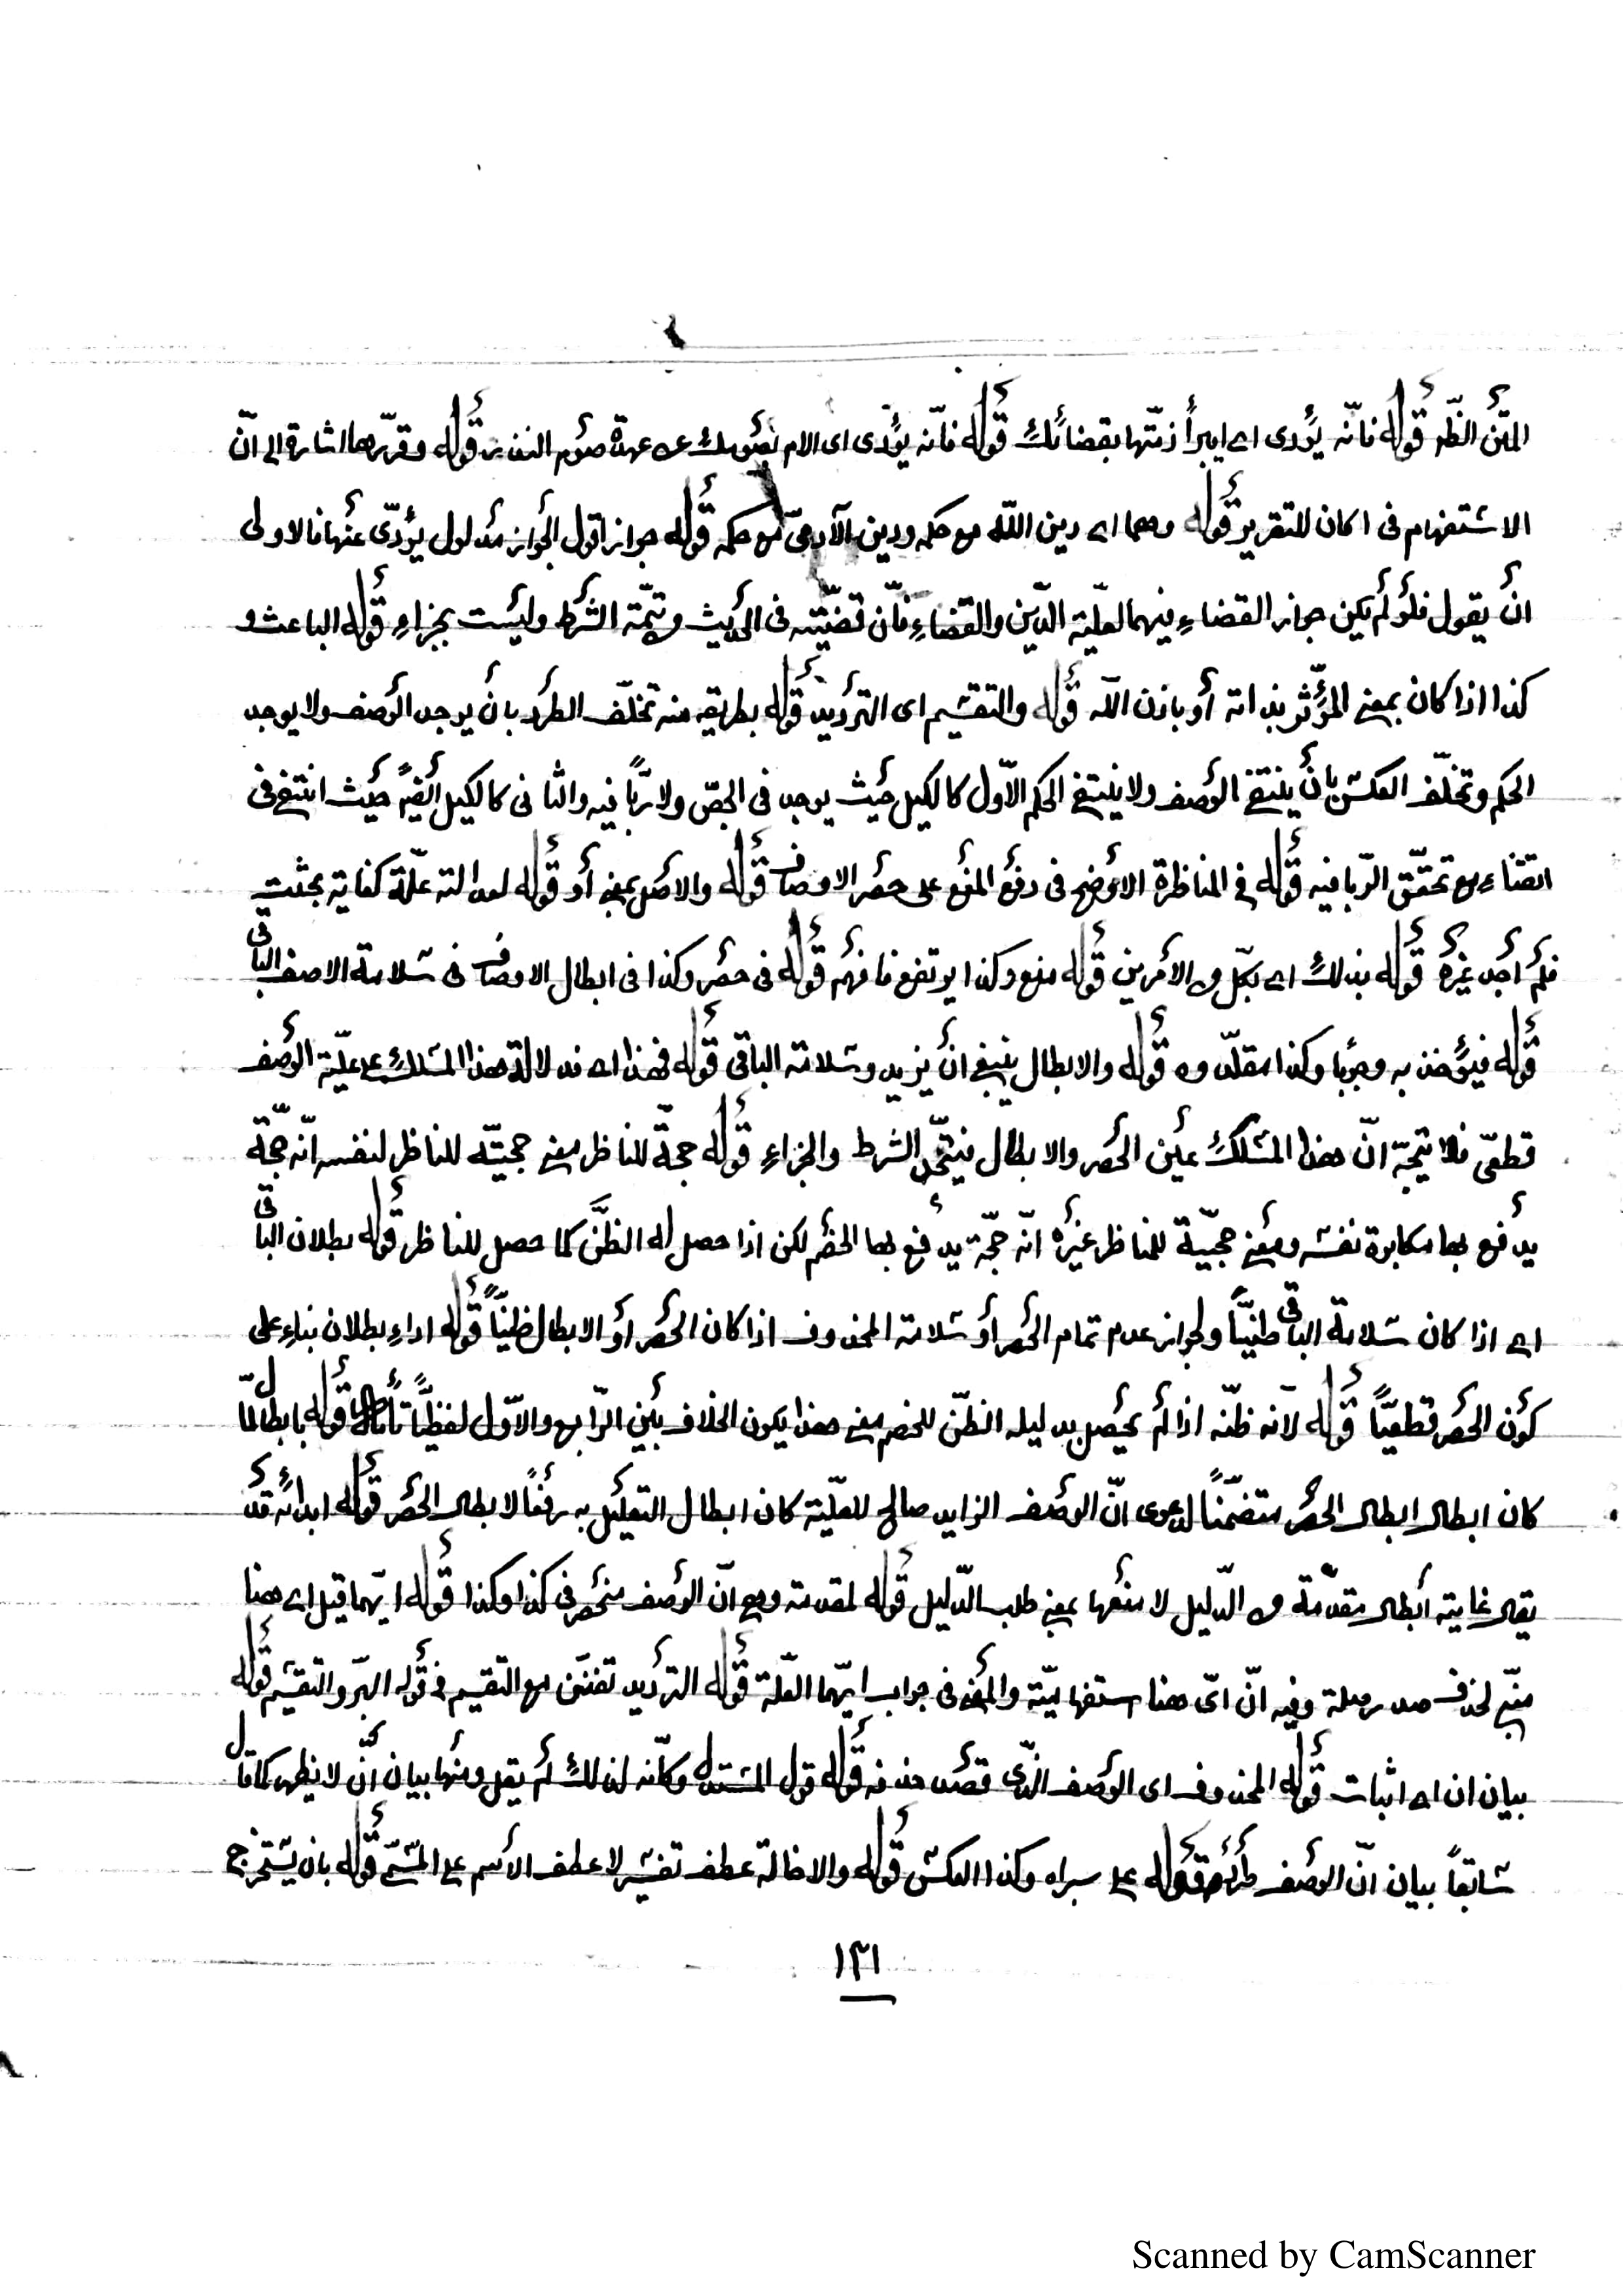 المتن الظهر قوله فانّه يؤدى اى ايبرأ ذمّتها بقضائك قوله فانّه يؤدى اى الام بصومك عن عهدة صوم النذر قوله وقرّرهما اشارة الى انّ
الاستفهام فى اكان للتقرير قوله وهما اى دين اللّه مع حكمه ودين الآدمىّ مع حكمه قوله جواز اقول الجواز مدلول يؤدّى عنها فالاولى
انْ يقول فلو لم يكن جواز القضاءِ فيهما لعلّية الدّين والقضاءِ فانّ قضيّته فى الحديث من تتمّة الشرط وليست بجزاءٍ قوله الباعث و
كذا اذا كان بمعنى المؤثّر بذاته أو باذن اللّه قوله والتقسيم اى الترديد قوله بطريقه منه تخلّف الطرد بأن يوجد الوصف ولا يوجد
الحكم وتخلّف العكس بأن ينتفى الوصف ولا ينتفى الحكم الاوّل كالكيل حيث يوجد فى الجصّ ولا ربًا فيه والثانى كالكيل أيضًا حيث انتفى فى
القثاءِ مع تحقّق الرّبا فيه قوله فى المناظرة الاوضح فى دفع المنع على حصر الاوصاف قوله والاصل بمعنى أو قوله لعدالته علّة كفاية بحثت
فلم أجد غيره قوله بذلك اى بكلّ من الأمرين قوله منع وكذا يرتفع فافهم قوله فى حصر وكذا فى ابطال الاوصاف فى سلامة الاصف الباقى
قوله فيؤخذ به وجوبا وكذا مقلّدوه قوله والابطال ينبغى انْ يزيد وسلامة الباقى قوله فهذا اى فدلالة هذا المسلك على علّية الوصف
قطعىّ فلا يتّجه انّ هذا المسلك عين الحصر والابطال فيتّحد الشرط والجزاءِ قوله حجّة للناظر معنى حجيّته للناظر لنفسه انّه حجّة
يدفع بها مكابرة نفسه ومعنى حجيّة للمناظر غيره انّه حجّة يدفع بها الخصم لكن اذا حصل له الظنّ كما حصل للناظر قوله بطلان الباقى
اى اذا كان سلامة الباقى ظنيًّا ولجواز عدم تمام الحصر أو سلامة المحذوف اذا كان الحصر أو الابطال ظنيًّا قوله اداءِ بطلان بناءِ على
كون الحصر قطعيًّا قوله لانّه ظنّه اذا لم يحصل بدليله الظنّ للخصم فعلى هذا يكون الخلاف بين الرّابع والاوّل لفظيًّا تأمّل قوله بابطال لمّا
كان ابطال ابطال الحصر متضمّنًا لدعوى انّ الوصف الزايد صالح للعلّية كان ابطال التعليل به رفعًا لابطال الحصر قوله ابدائه قد
يقال غايته أبطال مقدّمة من الدّليل لا منعها بمعنى طلب الدّليل قوله لمقدمته وهى انّ الوصف منحصر فى كذا وكذا قوله ايّهما قيل اى هنا
مبنىّ لحذف صدر صلة وفيه انّ اىّ هنا استفهاميّة والمعنى فى جواب ايّهما العلّة قوله الترديد تفنّن مع التقسيم فى قوله السبر والتقسيم قوله
بيان ان اى اثبات قوله المحذوف اى الوصف الذّى قصد حذفه قوله قول المستدل وكأنّه لذلك لم يقل ومنها بيان انّ لا يظهر كما قال
سابقاً بيان انّ الوصف طردىّ قوله على سبراه وكذا العكس قوله والاخالة عطف تفسير لا عطف الأسم على المسمّى قوله بان يستخرج
١٣١
Scanned by CamScanner